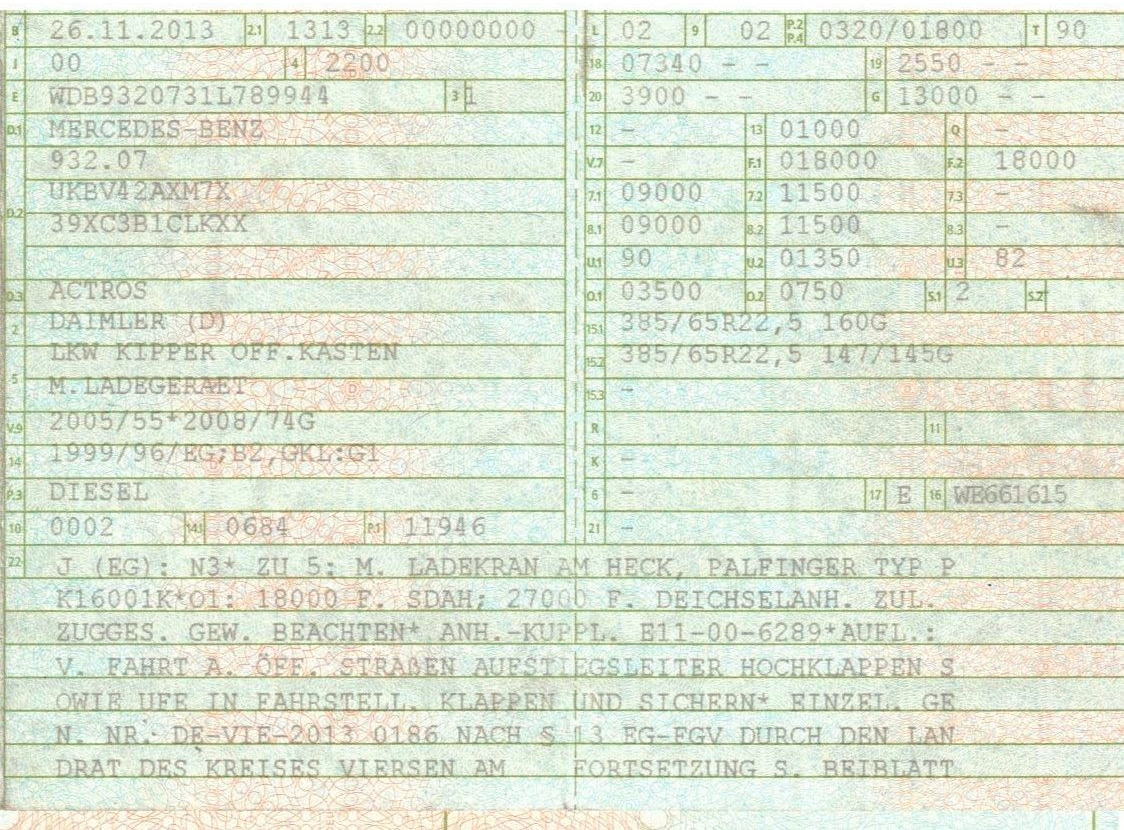 B 26.11.2013 2.1 1313 2.2 00000000 -
J 00 4 2200
E WDB9320731L789944 3 1
D.1 MERCEDES-BENZ
932.07
D.2 UKBV42AXM7X
39XC3B1CLKXX
D.3 ACTROS
2 DAIMLER (D)
5 LKW KIPPER OFF.KASTEN
M.LADEGERAET
V.9 2005/55*2008/74G
14 1999/96/EG;B2,GKL:G1
P.3 DIESEL
10 0002 14.1 0684 P.1 11946
L 02 9 02 P.2 P.4 0320/01800 T 90
18 07340 - - 19 2550 - -
20 3900 - - G 13000 - -
12 - 13 01000 Q -
V.7 - F.1 018000 F.2 18000
7.1 09000 7.2 11500 7.3 -
8.1 09000 8.2 11500 8.3 -
U.1 90 U.2 01350 U.3 82
O.1 03500 O.2 0750 S.1 2 S.2
15.1 385/65R22,5 160G
15.2 385/65R22,5 147/145G
15.3 -
R 11
K -
6 - 17 E 16 WE661615
21 -
22 J (EG): N3* ZU 5: M. LADEKRAN AM HECK, PALFINGER TYP P
K16001K*O1: 18000 F. SDAH; 27000 F. DEICHSELANH. ZUL.
ZUGGES. GEW. BEACHTEN* ANH.-KUPPL. E11-00-6289*AUFL.:
V. FAHRT A. ÖFF. STRAßEN AUFSTIEGSLEITER HOCHKLAPPEN S
OWIE UFE IN FAHRSTELL. KLAPPEN UND SICHERN* EINZEL. GE
N. NR. DE-VIE-2013 0186 NACH § 13 EG-FGV DURCH DEN LAN
DRAT DES KREISES VIERSEN AM FORTSETZUNG S. BEIBLATT